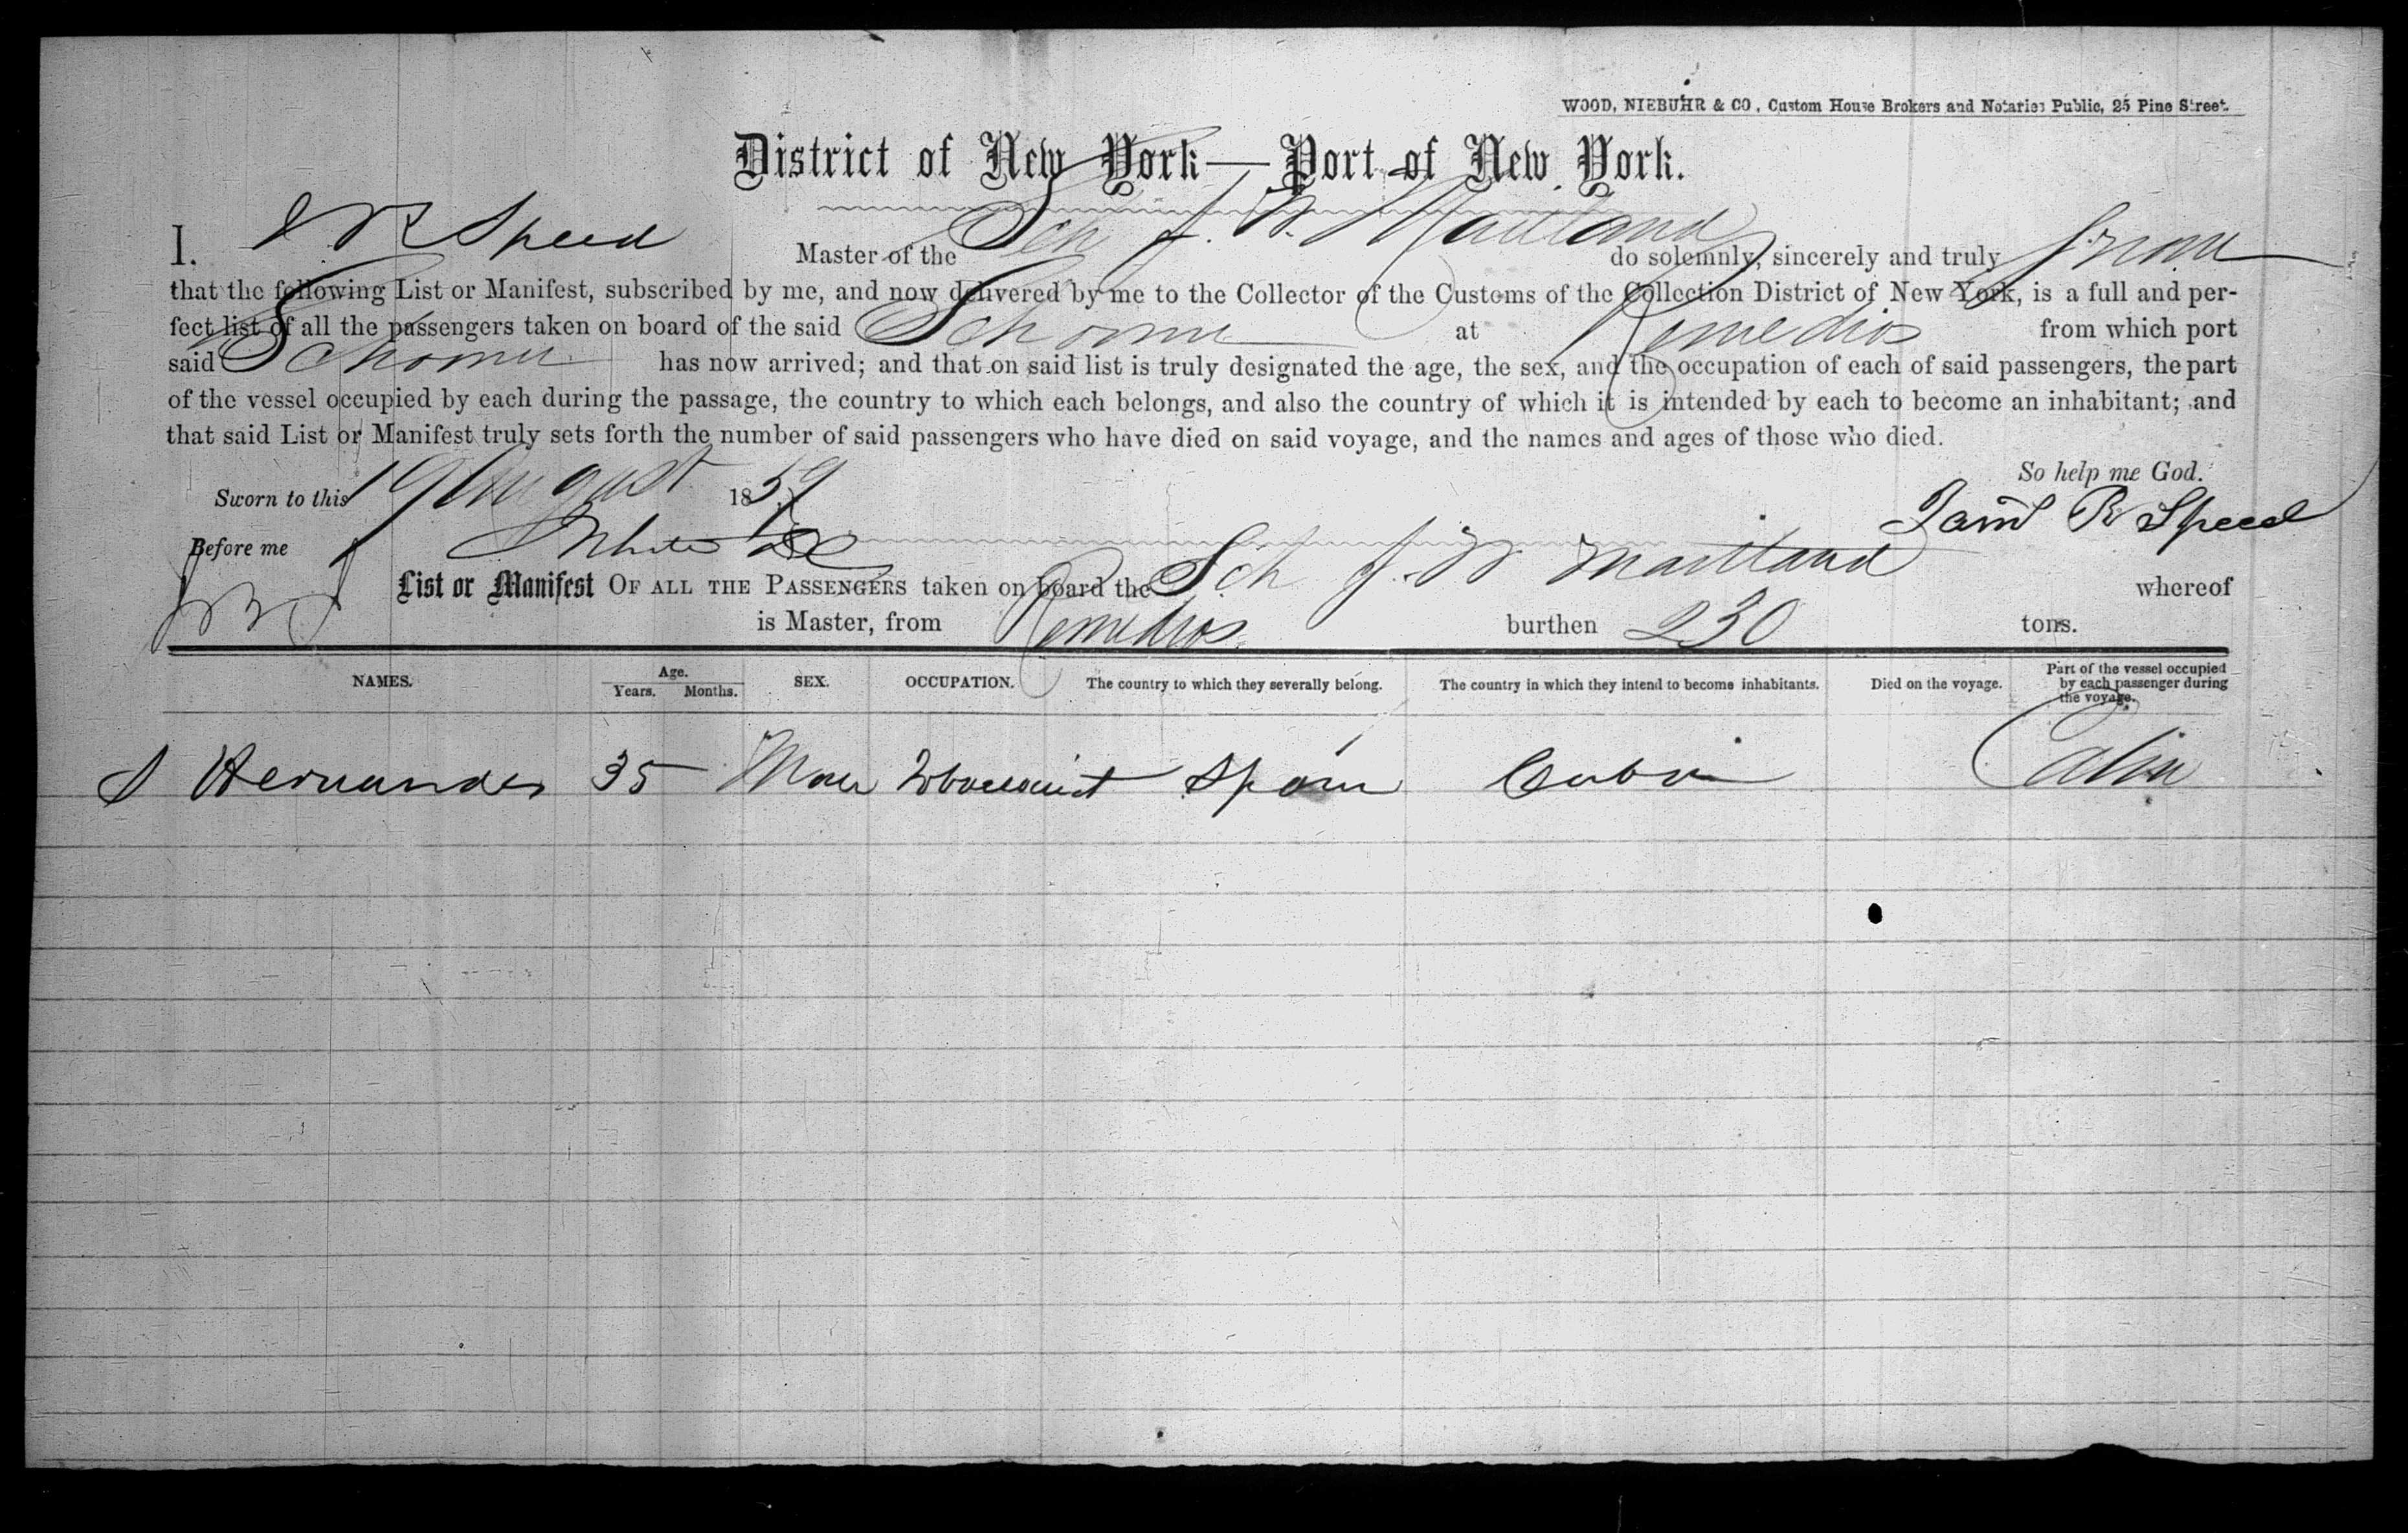 WOOD, NIEBUHR & CO, Custom House Brokers and Notaries Public, 25 Pine Street.
District of New York — Port of New York.
I. J R Speed Master of the Sch J. W. Maitland do solemnly, sincerely and truly swear
that the following List or Manifest, subscribed by me, and now delivered by me to the Collector of the Customs of the Collection District of New York, is a full and per-
fect list of all the passengers taken on board of the said Schooner at Remedios from which port
said Schooner has now arrived; and that on said list is truly designated the age, the sex, and the occupation of each of said passengers, the part
of the vessel occupied by each during the passage, the country to which each belongs, and also the country of which it is intended by each to become an inhabitant; and
that said List or Manifest truly sets forth the number of said passengers who have died on said voyage, and the names and ages of those who died.
So help me God.
Sworn to this 19 August 1859
Jams R Speed
Before me
List or Manifest OF ALL THE PASSENGERS taken on board the Sch J. W Maitland whereof
is Master, from Remedios burthen 230 tons.
NAMES. Age. Years. Months. SEX. OCCUPATION. The country to which they severally belong. The country in which they intend to become inhabitants. Died on the voyage. Part of the vessel occupied by each passenger during the voyage.
S Hernandes 35 Male Spain Cuba Cabin